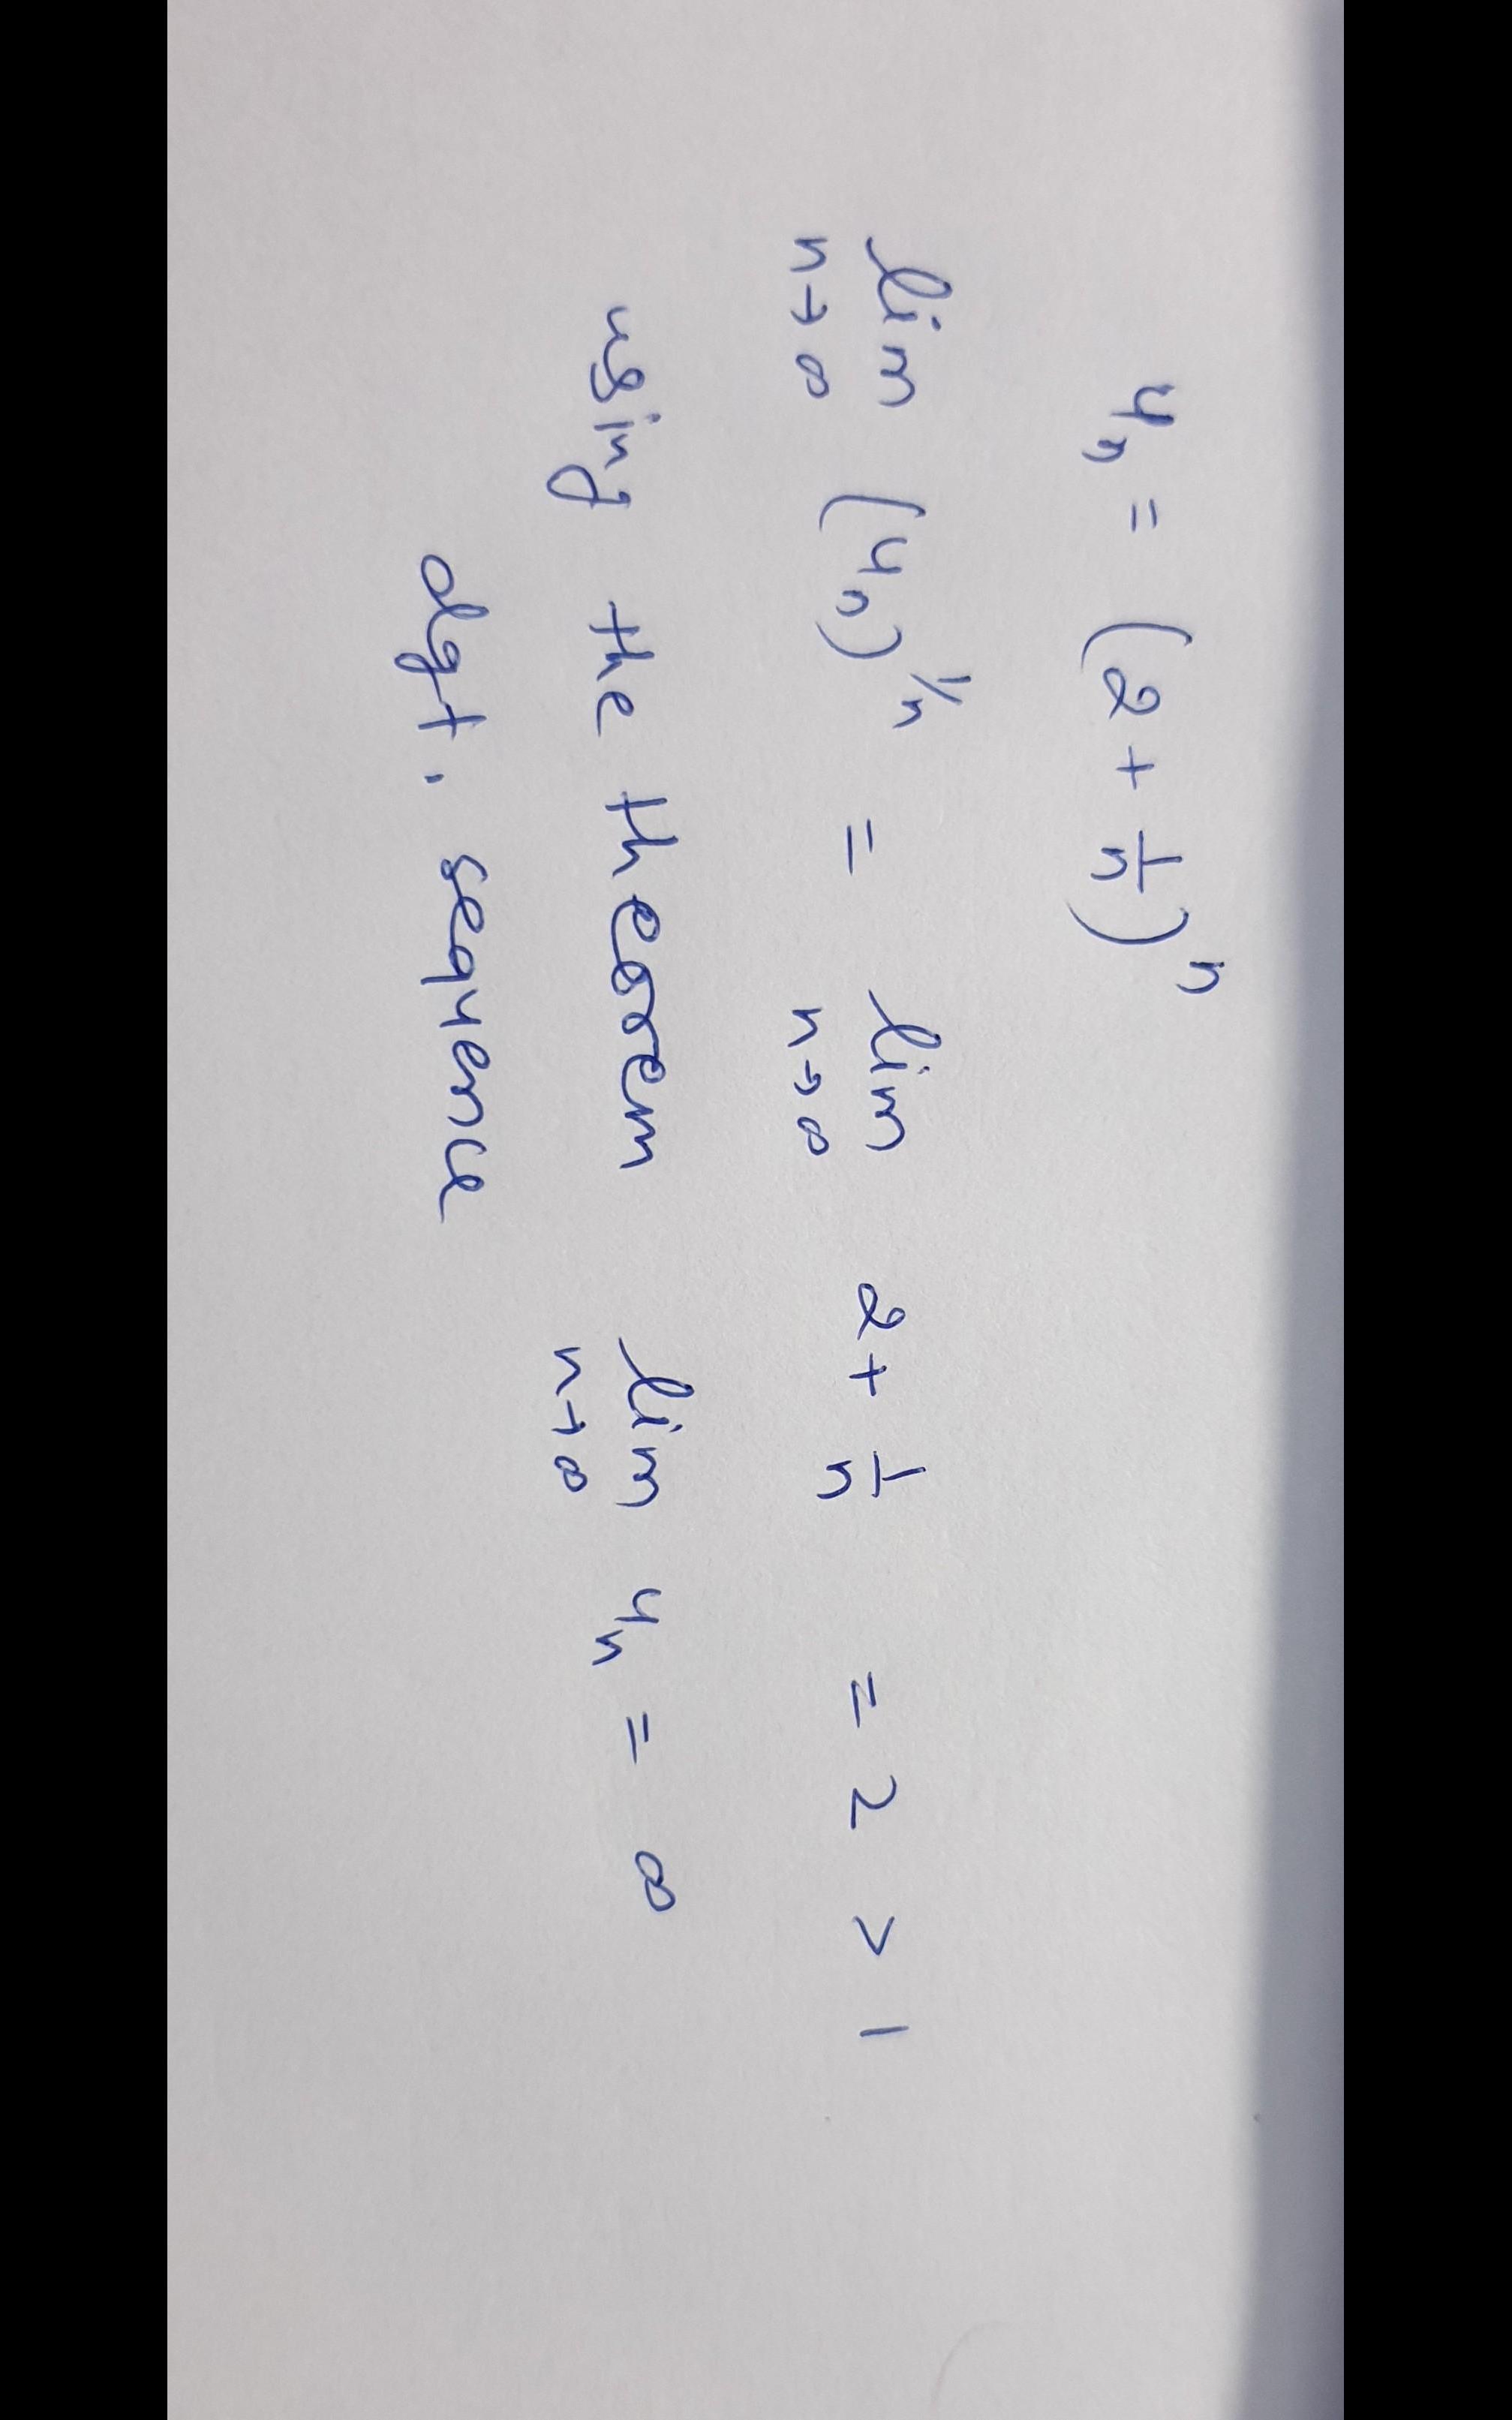 u_n = (2 + 1/n)^n
lim n→∞ (u_n)^1/n = lim n→∞ 2 + 1/n = 2 > 1
using the theorem lim n→∞ u_n = ∞
dgt. sequence